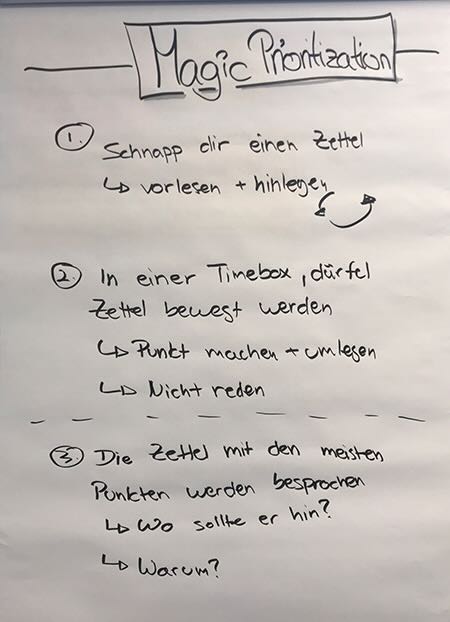 Magic Prioritization
1. Schnapp dir einen Zettel
↳ vorlesen + hinlegen
2. In einer Timebox, dürfel
Zettel bewegt werden
↳ Punkt machen + umlegen
↳ Nicht reden
3. Die Zettel mit den meisten
Punkten werden besprochen
↳ Wo sollte er hin?
↳ Warum?